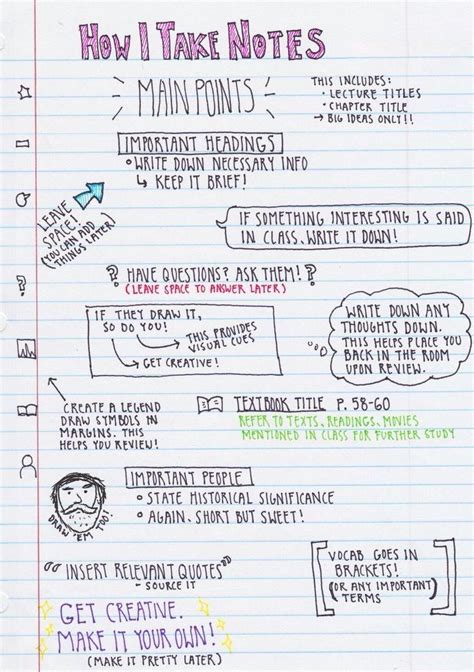 HOW I TAKE NOTES
MAIN POINTS
THIS INCLUDES:
• LECTURE TITLES
• CHAPTER TITLE
→ BIG IDEAS ONLY!!
IMPORTANT HEADINGS
• WRITE DOWN NECESSARY INFO
↳ KEEP IT BRIEF!
LEAVE
SPACE!
(YOU CAN ADD
THINGS LATER)
IF SOMETHING INTERESTING IS SAID
IN CLASS, WRITE IT DOWN!
? HAVE QUESTIONS? ASK THEM! ?
(LEAVE SPACE TO ANSWER LATER)
IF THEY DRAW IT,
SO DO YOU!
THIS PROVIDES
VISUAL CUES
GET CREATIVE!
WRITE DOWN ANY
THOUGHTS DOWN.
THIS HELPS PLACE YOU
BACK IN THE ROOM
UPON REVIEW.
CREATE A LEGEND
DRAW SYMBOLS IN
MARGINS. THIS
HELPS YOU REVIEW!
TEXTBOOK TITLE P. 58-60
REFER TO TEXTS, READINGS, MOVIES
MENTIONED IN CLASS FOR FURTHER STUDY
IMPORTANT PEOPLE
• STATE HISTORICAL SIGNIFICANCE
• AGAIN, SHORT BUT SWEET!
DRAW 'EM TOO!
"INSERT RELEVANT QUOTES"
- SOURCE IT
[VOCAB GOES IN
BRACKETS!
(OR ANY IMPORTANT
TERMS]
GET CREATIVE.
MAKE IT YOUR OWN!
(MAKE IT PRETTY LATER)